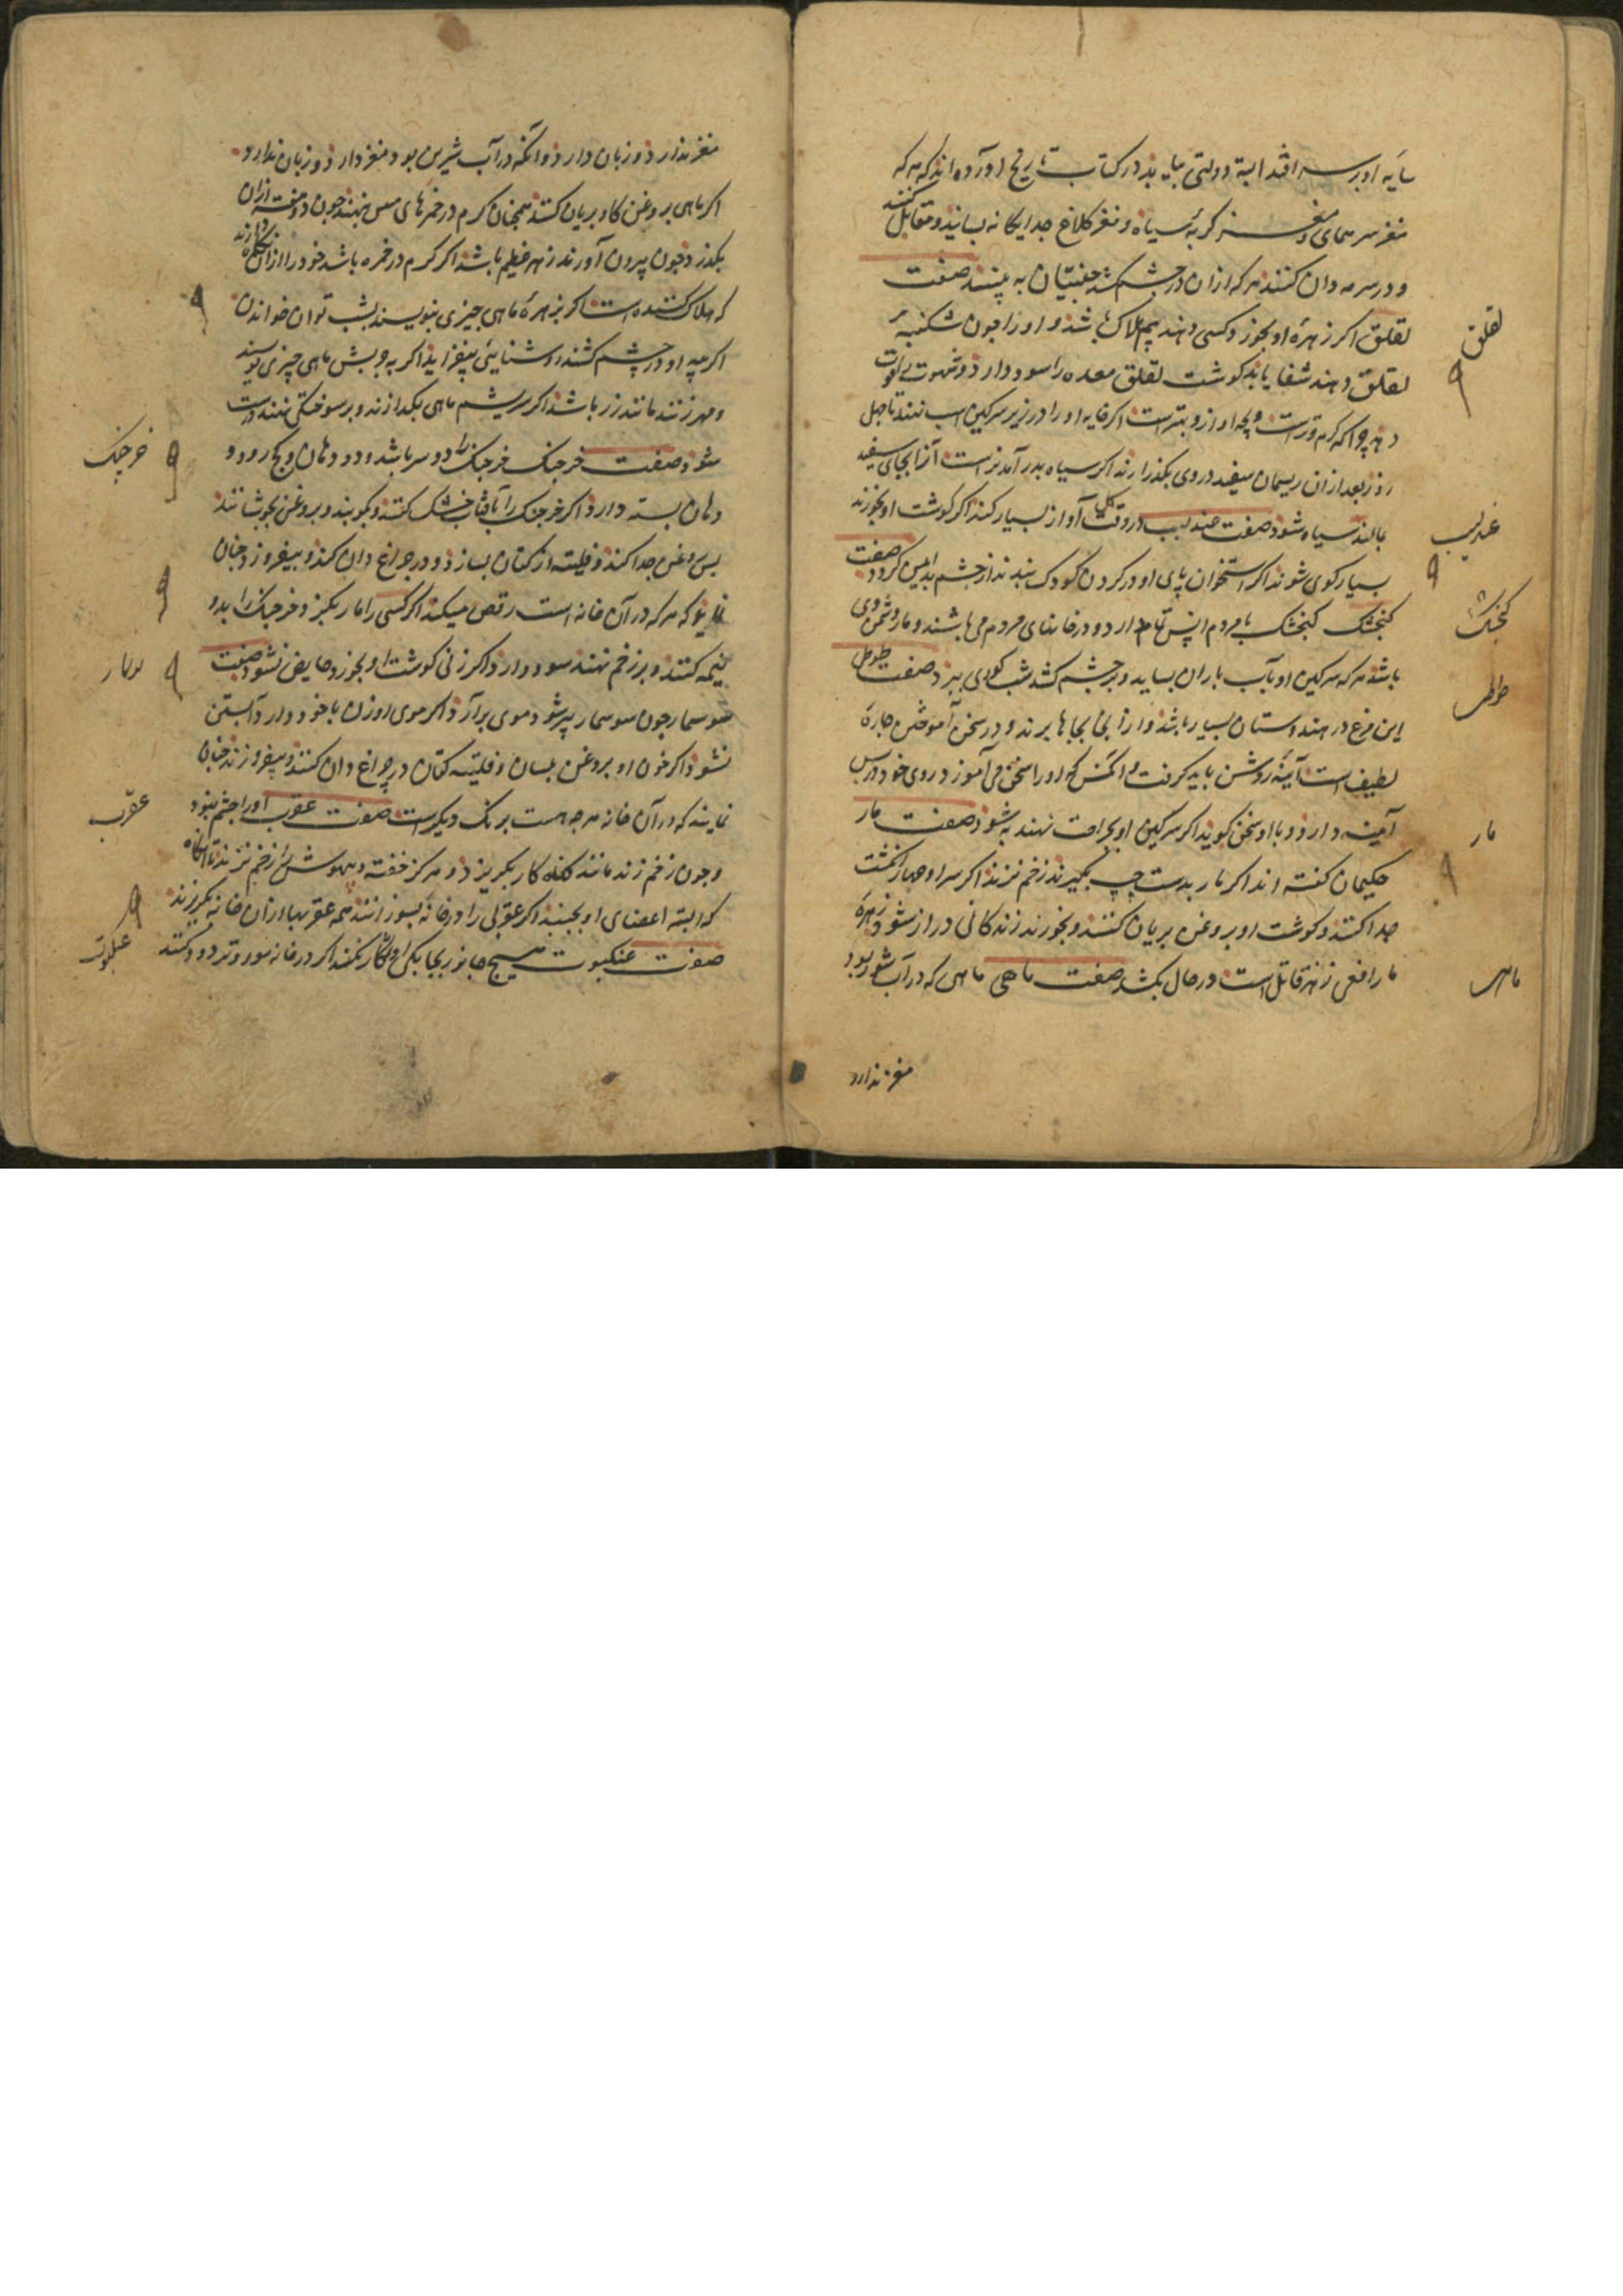 سایه او بر سر افتد البته دولتی بیابد در کتاب تاریخ آورده اند که هر که
مغز سر همای و مغز سر گربهٔ سیاه و مغز کلاغ جدایکانه بسایند و مقابل کنند
و در سرمه دان کنند هر که ازان در چشم کشد جنیان به بیند صفت
لقلق اکر زهرهٔ او بخورد کسی دهند بیم هلاک باشد و او را چون شکنبهٔ
لقلق دهند شفا یابد کوشت لقلق معده را سود دارد و شهوت
روز بعد ازان ریسمان سفید در وی بکذرانند اکر سیاه بدر آمد نر است آنرا بجای سفید
بمالند سیاه شود صفت عندلیب در وقت گل آواز بسیار کند اکر کوشت او بخورند
بسیار کوی شوند اکر استخوان پای او در کردن کودک بندند از چشم بد ایمن کردد صفت
کنجشک کنجشک با مردم انس تمام دارد و در خانهای مردم می باشند و مار دشمن وی
باشد هر که سرکین او بآب باران بساید و در چشم کشد شب کوری ببرد صفت طوطی
این مرغ در هندوستان بسیار باشد و از آنجا بجاها برند و در سخن آموختن چارهٔ
لطیف است آینهٔ روشن باید کرفت و آنکس که او را سخن می آموزد روی خود در پس
آینه دارد و با او سخن کوید اکر سرکین او بجراحت نهند به شود صفت مار
حکیمان کفته اند اکر مار بدست چپ بگیرند زخم نزند اکر سر او چهار انکشت
جدا کنند و کوشت او بروغن بریان کنند و بخورند زندکانی دراز شود و زهرهٔ
مار افعی زهر قاتل است در حال بکشد صفت ماهی ماهی که در آب شور بود
مغز ندارد
لقلق
عندلیب
کنجشک
طوطی
مار
ماهی
مغز ندارد و زبان دارد و آنکه در آب شیرین بود مغز دارد و زبان ندارد
اکر ماهی بروغن کاو بریان کنند همچنان کرم در خمرهای مس نهند چون دو هفته ازان
بکذرد چون بیرون آورند زهر عظیم باشد اکر کرم در خمره باشد خود را ازان نکاه دارند
که هلاک کننده است اکر بزهرهٔ ماهی چیزی بنویسند بشب توان خواندن
اکر پیه او در چشم کشند روشنایی بیفزاید اکر به چربش ماهی چیزی نویسند
و مهر زنند مانند زر باشد اکر سریشم ماهی بکدازند و بر سوختکی نهند درست
شود صفت خرجنک خرجنک را دو سر باشد و دو دهان و کج رود و
دهان بسته دارد اکر خرجنک را بآفتاب خشک کنند و بکوبند و بروغن بجوشانند
پس روغن جدا کند و فلیته از کتان بسازد و در چراغ دان کند و بیفروزد چنان
نماید که هر که در آن خانه است رقص میکند اکر کسی را مار بکزد و خرجنک را بدو
نیمه کنند و بر زخم نهند سود دارد و اکر زنی کوشت او بخورد حایض نشود صفت
سوسمار چون سوسمار پیر شود موی برآرد اکر موی او زن با خود دارد آبستن
نشود اکر خون او بروغن بلسان و فلیته کتان در چراغ دان کنند و بیفروزند چنان
نمایند که در آن خانه هرچه هست برنک دیکر است صفت عقرب او را چشم نبود
و چون زخم زند مانند کناه کار بکریزد و هرکز خفته و بیهوش را زخم نزند تا آنکاه
که البته اعضای او بجنبد اکر عقربی را در خانه بسوزانند همه عقربها ازان خانه بکریزند
صفت عنکبوت هیچ جانور بجایکی او شکار نکند اکر در خانه مورد تر دود کنند
خرچنک
سوسمار
عقرب
عنکبوت